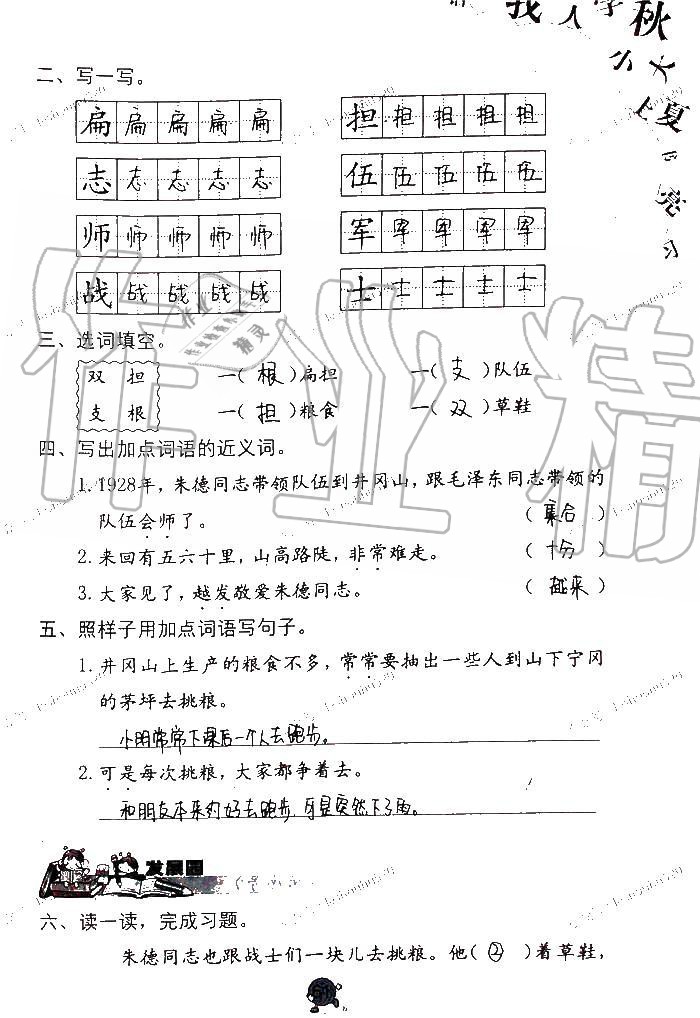 我 人 学 秋
大
上 夏
亮
二、写一写。
扁 扁 扁 扁 扁 担 担 担 担 担
志 志 志 志 志 伍 伍 伍 伍 伍
师 师 师 师 师 军 军 军 军 军
战 战 战 战 战 士 士 士 士 士
三、选词填空。
双 担 一(根)扁担 一(支)队伍
支 根 一(担)粮食 一(双)草鞋
四、写出加点词语的近义词。
1.1928年，朱德同志带领队伍到井冈山，跟毛泽东同志带领的
队伍会师了。 (集合)
2.来回有五六十里，山高路陡，非常难走。 (十分)
3.大家见了，越发敬爱朱德同志。 (越来)
五、照样子用加点词语写句子。
1.井冈山上生产的粮食不多，常常要抽出一些人到山下宁冈
的茅坪去挑粮。
小明常常下课后一个人去跑步。
2.可是每次挑粮，大家都争着去。
和朋友本来约好去跑步，可是突然下了雨。
发展园
六、读一读，完成习题。
朱德同志也跟战士们一块儿去挑粮。他(②)着草鞋，
作业精
作业
精灵